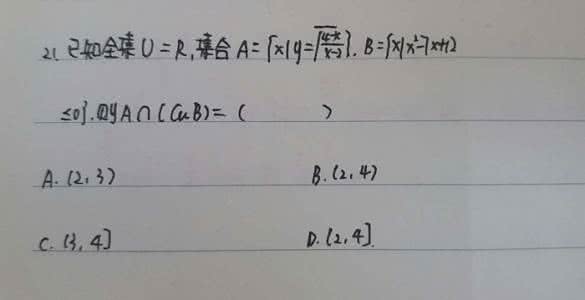 21. 已知全集U=R,集合A={x|y=√(4-x)/(x-2)}. B={x|x²-7x+12
≤0}.则A∩(CuB)=( )
A. (2,3) B. (2,4)
C. (3,4] D. (2,4].